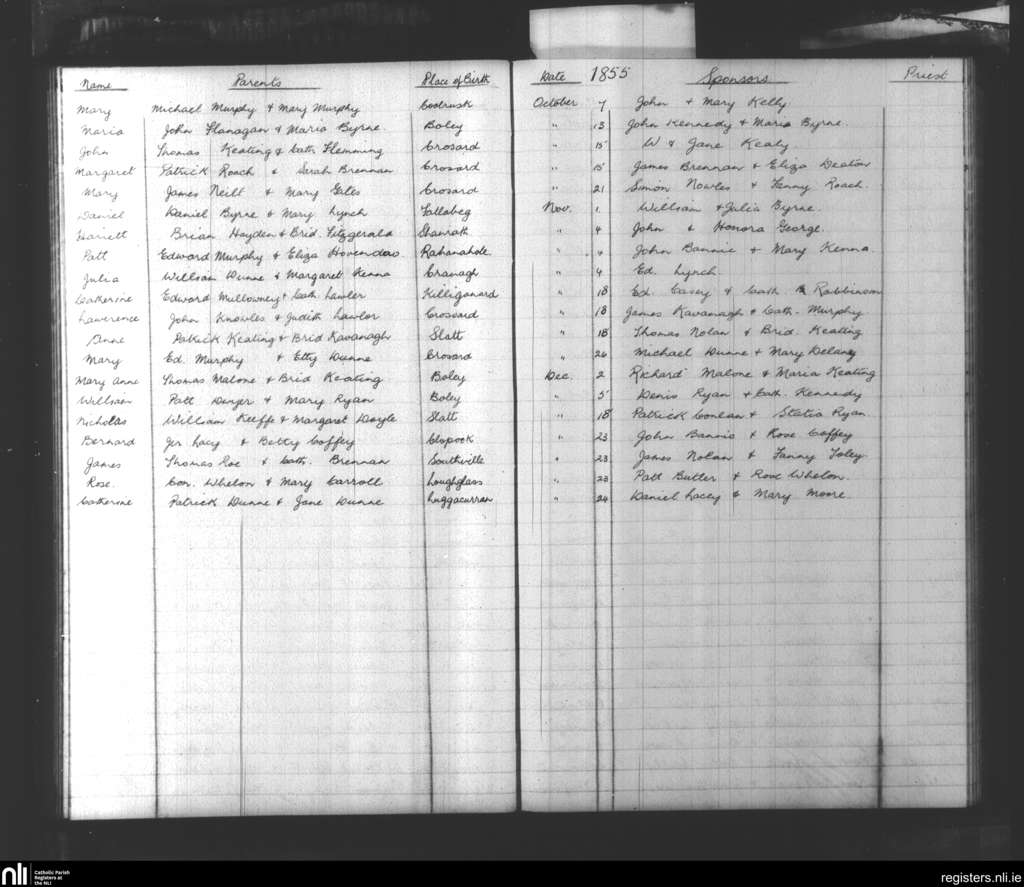 Name Parents Place of Birth Date 1855 Sponsors Priest
Mary Michael Murphy & Mary Murphy Coolrusk October 7 John & Mary Kelly
Maria John Flanagan & Maria Byrne Boley " 13 John Kennedy & Maria Byrne.
John Thomas Keating & Cath Flemming Crosard " 15 W & Jane Kealy
Margaret Patrick Roach & Sarah Brennan Crosard " 15 James Brennan & Eliza Deaton
Mary James Neill & Mary Gales Crosard " 21 Simon Nowles & Fanny Roach.
Daniel Daniel Byrne & Mary Lynch Fallabeg Nov. 1 William & Julia Byrne.
Hariett Brian Hayden & Brid. Fitzgerald Shanrath " 4 John & Honora George.
Patt Edward Murphy & Eliza Hovendas Rahanahole " " John Bannie & Mary Kenna.
Julia William Dunne & Margaret Kenna Cranagh " 4 Ed. Lynch.
Catherine Edward Mullowney & Cath. Lawler Killiganard " 18 Ed. Casey & Cath. Robbinson
Lawrence John Knowles & Judith Lawlor Crossard " 18 James Kavanagh & Cath. Murphy
Anne Patrick Keating & Brid Kavanagh Slatt " 18 Thomas Nolan & Brid. Keating
Mary Ed. Murphy & Etty Dunne Crosard " 26 Michael Dunne & Mary Delany
Mary Anne Thomas Malone & Brid Keating Boley Dec. 2 Richard Malone & Maria Keating
William Patt Dwyer & Mary Ryan Boley " 5 Denis Ryan & Cath. Kennedy
Nicholas William Keeffe & Margaret Doyle Slatt " 18 Patrick Conlan & Statia Ryan.
Bernard Jer Lacy & Betty Coffey Clopook " 23 John Bannis & Rose Coffey
James Thomas Roe & Cath. Brennan Southville " 23 James Nolan & Fanny Foley
Rose. Con. Whelon & Mary Carroll Loughglass " 23 Patt Butler & Rose Whelon.
Catherine Patrick Dunne & Jane Dunne Luggacurran " 24 Daniel Lacey & Mary Moore.
nli Catholic Parish
Registers at
the NLI
registers.nli.ie